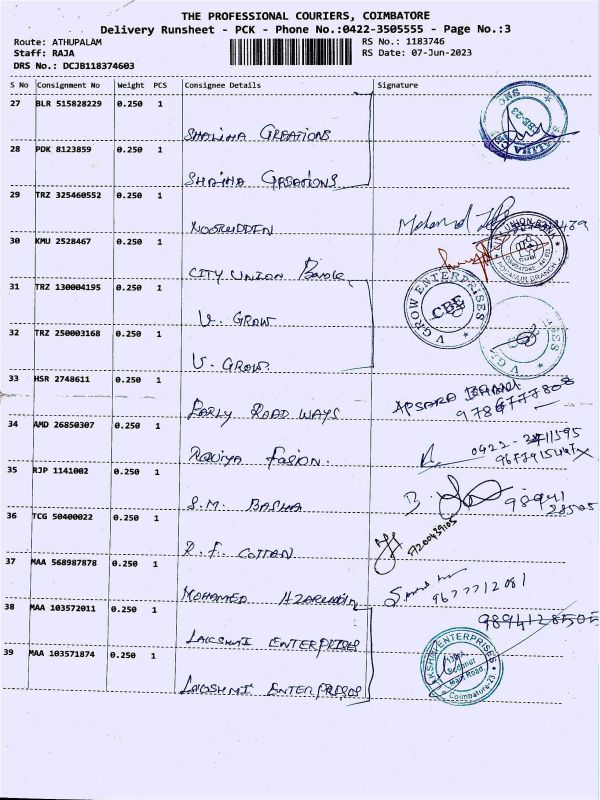 THE PROFESSIONAL COURIERS, COIMBATORE
Delivery Runsheet - PCK - Phone No.:0422-3505555 - Page No.:3
Route: ATHUPALAM RS No.: 1183746
Staff: RAJA RS Date: 07-Jun-2023
DRS No.: DCJB118374603
S No Consignment No Weight PCS Consignee Details Signature
27 BLR 515828229 0.250 1
SHALIHA CREATIONS
28 PDK 8123859 0.250 1
SHAIHA CREATIONS
29 TRZ 325460552 0.250 1
NOORUDDEN Mohamed
30 KMU 2528467 0.250 1
CITY UNION Bank
UNION BANK
31 TRZ 130004195 0.250 1
V. GROW
V GROW ENTERPRISES
CBE
32 TRZ 250003168 0.250 1
V. GROW
33 HSR 2748611 0.250 1
EARLY ROAD WAYS APSARA
34 AMD 26850307 0.250 1
Raviya Fasion.
35 RJP 1141002 0.250 1
S.M. BASHA
36 TCG 50400022 0.250 1
R.F. COTTAN 7200439105
37 MAA 568987878 0.250 1
MOHAMED AZARUDDIN 9677712081
38 MAA 103572011 0.250 1
9894128505
LAKSHMI ENTERPRISES
39 MAA 103571874 0.250 1
LAKSHMI ENTERPRISES
LAKSHMI ENTERPRISES
Main Road,
Coimbatore-23